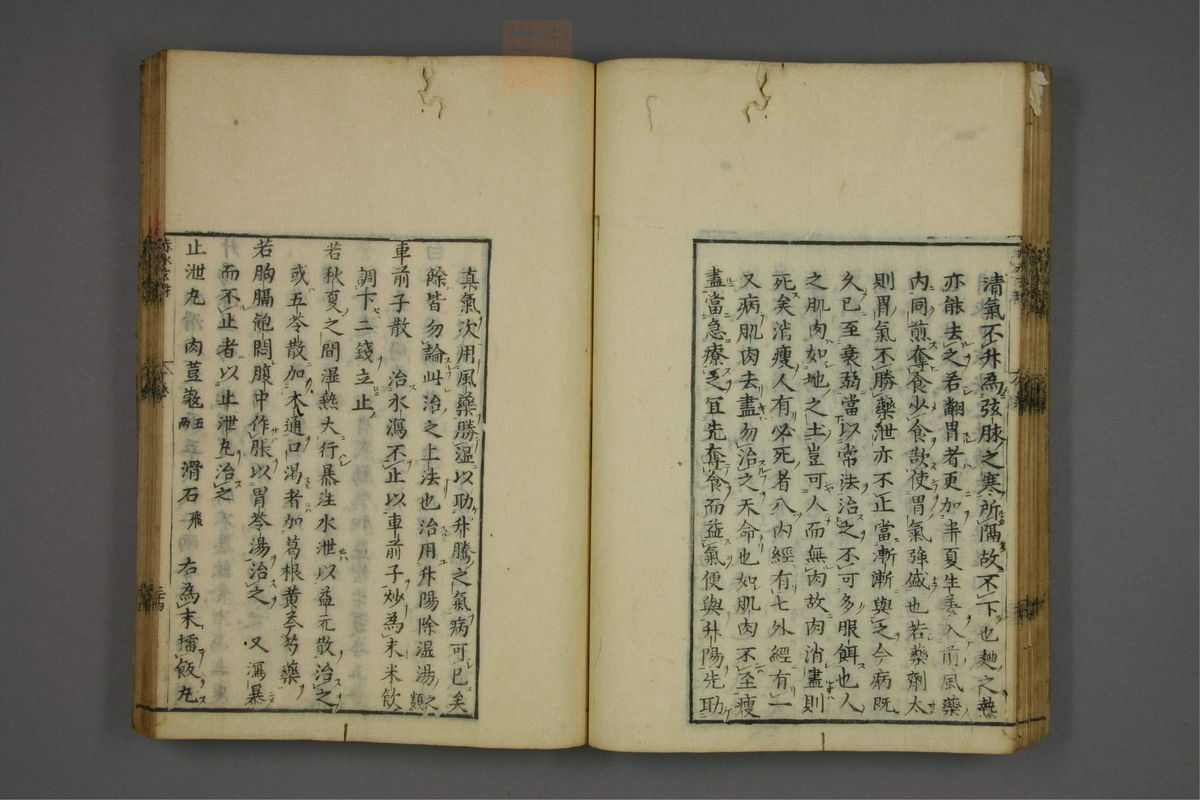 清氣不升為弦脉之寒所隔故不下也麪之熱
亦能去之若翻胃者更加半夏生姜入前風藥
内同煎奪食少食歆使胃氣強盛也若藥劑太
則胃氣不勝藥泄亦不正當漸漸與之今病既
久已至衰弱當以常法治之不可多服餌也人
之肌肉如地之土豈可人而無肉故肉消盡則
死矣消瘦人有必死者八内經有七外經有一
又病肌肉去盡勿治之天命也如肌肉不至瘦
盡當急療之宜先奪食而益氣便與升陽先助
真氣次用風藥勝濕以助升騰之氣病可已矣
餘皆勿論此治之上法也治用升陽除湿湯之類
車前子散 治水瀉不止以車前子炒為末米飲
調下二錢立止
若秋夏之間湿熱大行暴注水泄以益元散治之
或五苓散加木通口渴者加葛根黄芩芍藥
若胸膈飽悶腹中作脹以胃苓湯治之 又瀉暴
而不止者以止泄丸治之
止泄丸 肉荳蔲五兩 滑石飛 右為末擂飯丸